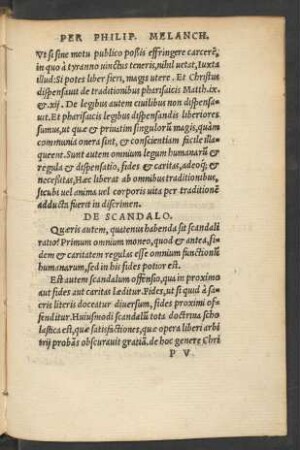 PER PHILIP. MELANCH.
Vt si sine motu publico possis effringere carcerē,
in quo à tyranno uinctus teneris, nihil uetat, iuxta
illud: Si potes liber fieri, magis utere. Et Christus
dispensauit de traditionibus pharisaicis Matth. ix
& .xij. De legibus autem ciuilibus non dispensa-
uit. Et pharisaicis legibus dispensandis liberiores
sumus, ut quæ & priuatim singulorũ magis, quàm
communia onera sint, & conscientiam facile illa-
queent. Sunt autem omnium legum humanarũ &
regula & dispensatio, fides & caritas, adeoq; &
necessitas, Hæc liberat ab omnibus traditionibus,
sicubi uel anima uel corporis uita per traditionē
adducta fuerit in discrimen.
DE SCANDALO.
Quæris autem, quatenus habenda sit scandali
ratio? Primum omnium moneo, quod & antea, fi-
dem & caritatem regulas esse omnium functionũ
humanarum, sed in his fides potior est.
Est autem scandalum offensio, qua in proximo
aut fides aut caritas læditur. Fides, ut si quid à sa-
cris literis doceatur diuersum, fides proximi of-
fenditur. Huiusmodi scandalũ tota doctrina scho-
lastica est, quæ satisfactiones, quæ opera liberi arbi
trij probãs obscurauit gratiã. de hoc genere Chri
P V.